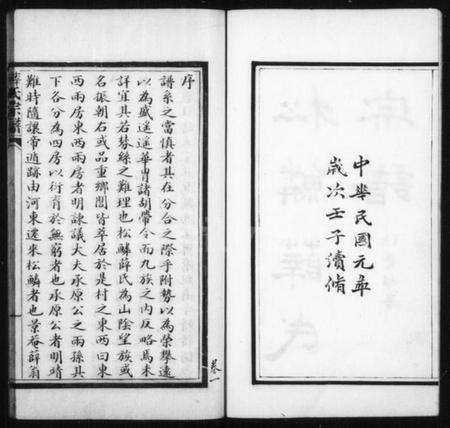 中華民國元年
歲次壬子續脩
序
譜系之當慎者其在分合之際乎附勢以為榮攀遠
以為盛遂遙華胄諸胡帶令而九族之內反略焉未
詳宜其若棼絲之難理也松鱗薛氏為山陰望族或
名振朝右或品重鄉閭皆萃居於是村之東西曰東
西兩房東西兩房者明諫議大夫永原公之兩孫其
下各分為四房以衍育於無窮者也永原公者明靖
難時隨讓帝遁跡由河東遷來松鱗者也景菴薛翁
薛氏宗譜
卷一